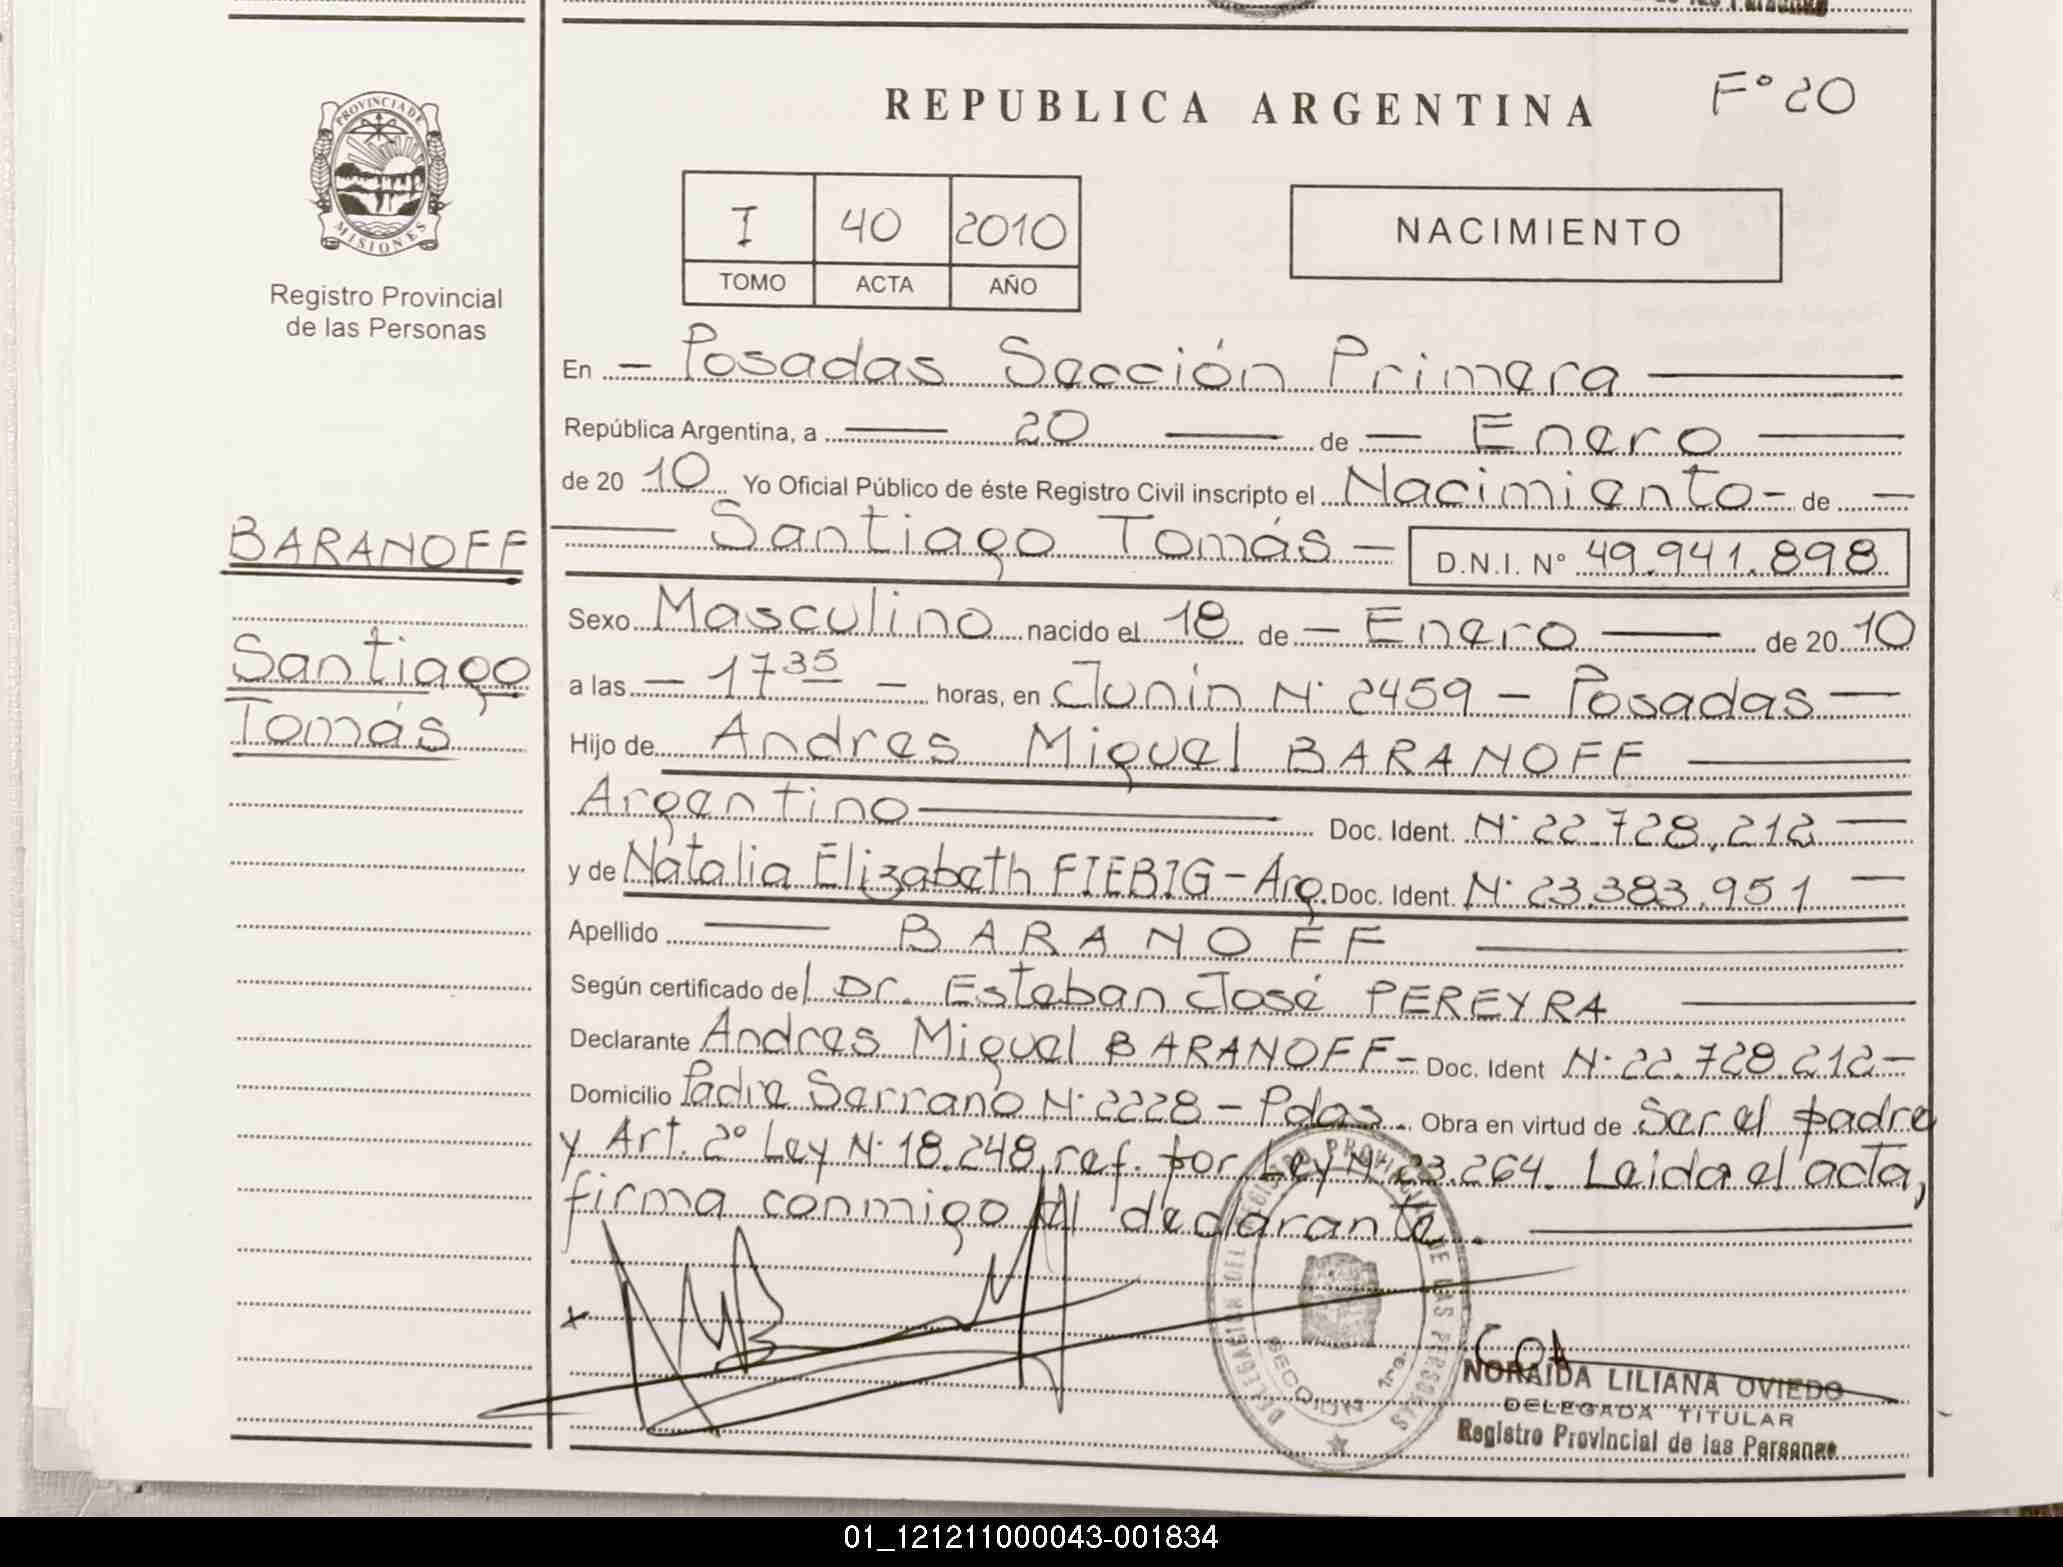 REPUBLICA ARGENTINA
F° 20
PROVINCIA DE
MISIONES
Registro Provincial
de las Personas
I 40 2010
TOMO ACTA AÑO
NACIMIENTO
En - Posadas Sección Primera
República Argentina, a 20 de - Enero
de 20 10 Yo Oficial Público de éste Registro Civil inscripto el Nacimiento - de -
BARANOFF
Santiago Tomás - D.N.I. N° 49.941.898
Sexo Masculino nacido el 18 de - Enero de 20 10
Santiago
Tomás
a las - 17 35 - horas, en Junín N° 2459 - Posadas -
Hijo de Andres Miguel BARANOFF
Argentino Doc. Ident. N° 22.728.212
y de Natalia Elizabeth FIEBIG - Arg. Doc. Ident. N° 23.383.951
Apellido BARANOFF
Según certificado del Dr. Esteban José PEREYRA
Declarante Andres Miguel BARANOFF - Doc. Ident N° 22.728.212 -
Domicilio Padre Serrano N° 2228 - Pdas. Obra en virtud de Ser el padre
y Art. 2° Ley N° 18.248, ref. por Ley N° 23.264. Leida el acta,
firma conmigo el declarante.
DELEGACION DEL REGISTRO PROVINCIAL DE LAS PERSONAS
SECCION 1ra.
x
NORAIDA LILIANA OVIEDO
DELEGADA TITULAR
Registro Provincial de las Personas
01_121211000043-001834